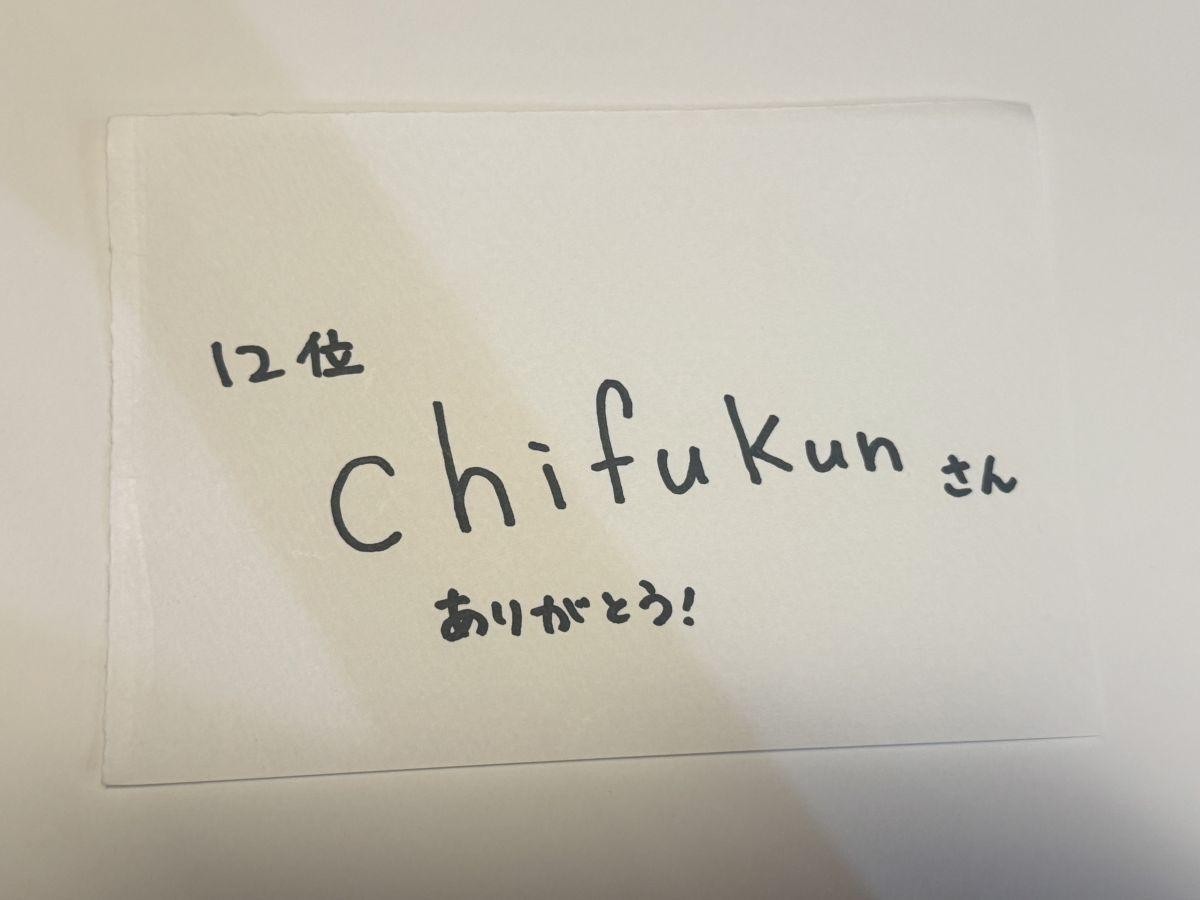 12位
chifukun さん
ありがとう!